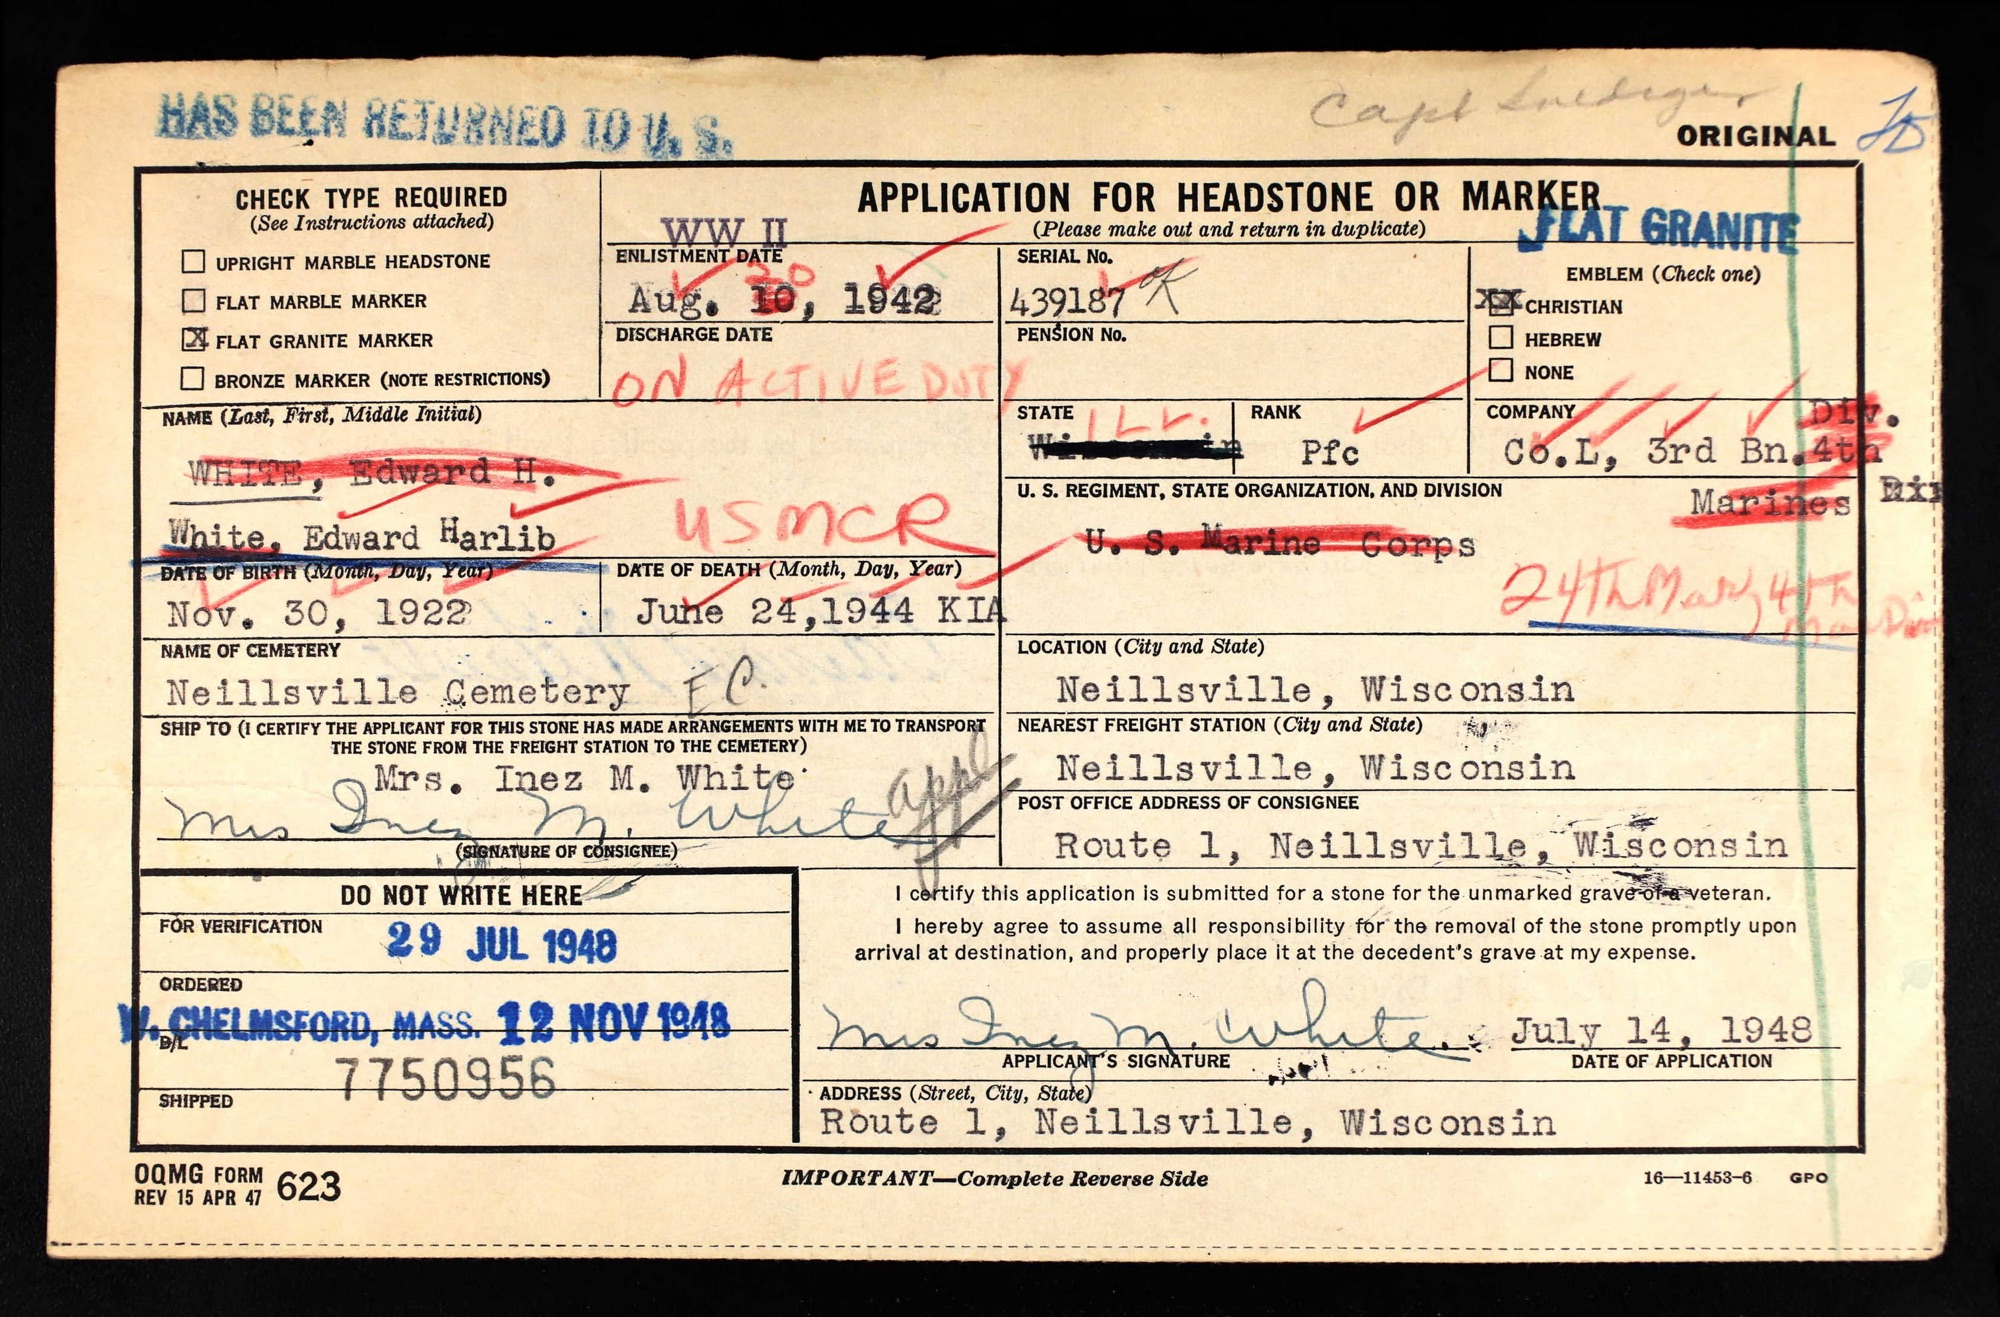 HAS BEEN RETURNED TO U. S.
Capt
ORIGINAL
CHECK TYPE REQUIRED
(See Instructions attached)
UPRIGHT MARBLE HEADSTONE
FLAT MARBLE MARKER
X FLAT GRANITE MARKER
BRONZE MARKER (NOTE RESTRICTIONS)
APPLICATION FOR HEADSTONE OR MARKER
(Please make out and return in duplicate)
FLAT GRANITE
WW II
ENLISTMENT DATE
30
Aug. 10, 1942
DISCHARGE DATE
ON ACTIVE DUTY
SERIAL No.
439187 OK
PENSION No.
EMBLEM (Check one)
XX CHRISTIAN
HEBREW
NONE
NAME (Last, First, Middle Initial)
WHITE, Edward H.
White, Edward Harlib
USMCR
STATE ILL.
Wisconsin
RANK
Pfc
COMPANY
Div.
Co.L, 3rd Bn. 4th
U. S. REGIMENT, STATE ORGANIZATION, AND DIVISION
Marines
U. S. Marine Corps
24th Mar, 4th
Mar Div
DATE OF BIRTH (Month, Day, Year)
Nov. 30, 1922
DATE OF DEATH (Month, Day, Year)
June 24,1944 KIA
NAME OF CEMETERY
Neillsville Cemetery EC.
LOCATION (City and State)
Neillsville, Wisconsin
SHIP TO (I CERTIFY THE APPLICANT FOR THIS STONE HAS MADE ARRANGEMENTS WITH ME TO TRANSPORT
THE STONE FROM THE FREIGHT STATION TO THE CEMETERY)
Mrs. Inez M. White
Mrs Inez M. White
appl
(SIGNATURE OF CONSIGNEE)
NEAREST FREIGHT STATION (City and State)
Neillsville, Wisconsin
POST OFFICE ADDRESS OF CONSIGNEE
Route 1, Neillsville, Wisconsin
DO NOT WRITE HERE
FOR VERIFICATION
29 JUL 1948
ORDERED
W. CHELMSFORD, MASS. 12 NOV 1948
B/L
7750956
SHIPPED
I certify this application is submitted for a stone for the unmarked grave of a veteran.
I hereby agree to assume all responsibility for the removal of the stone promptly upon
arrival at destination, and properly place it at the decedent's grave at my expense.
Mrs Inez M. White. July 14, 1948
APPLICANT'S SIGNATURE DATE OF APPLICATION
ADDRESS (Street, City, State)
Route 1, Neillsville, Wisconsin
OQMG FORM 623
REV 15 APR 47
IMPORTANT—Complete Reverse Side
16—11453-6 GPO